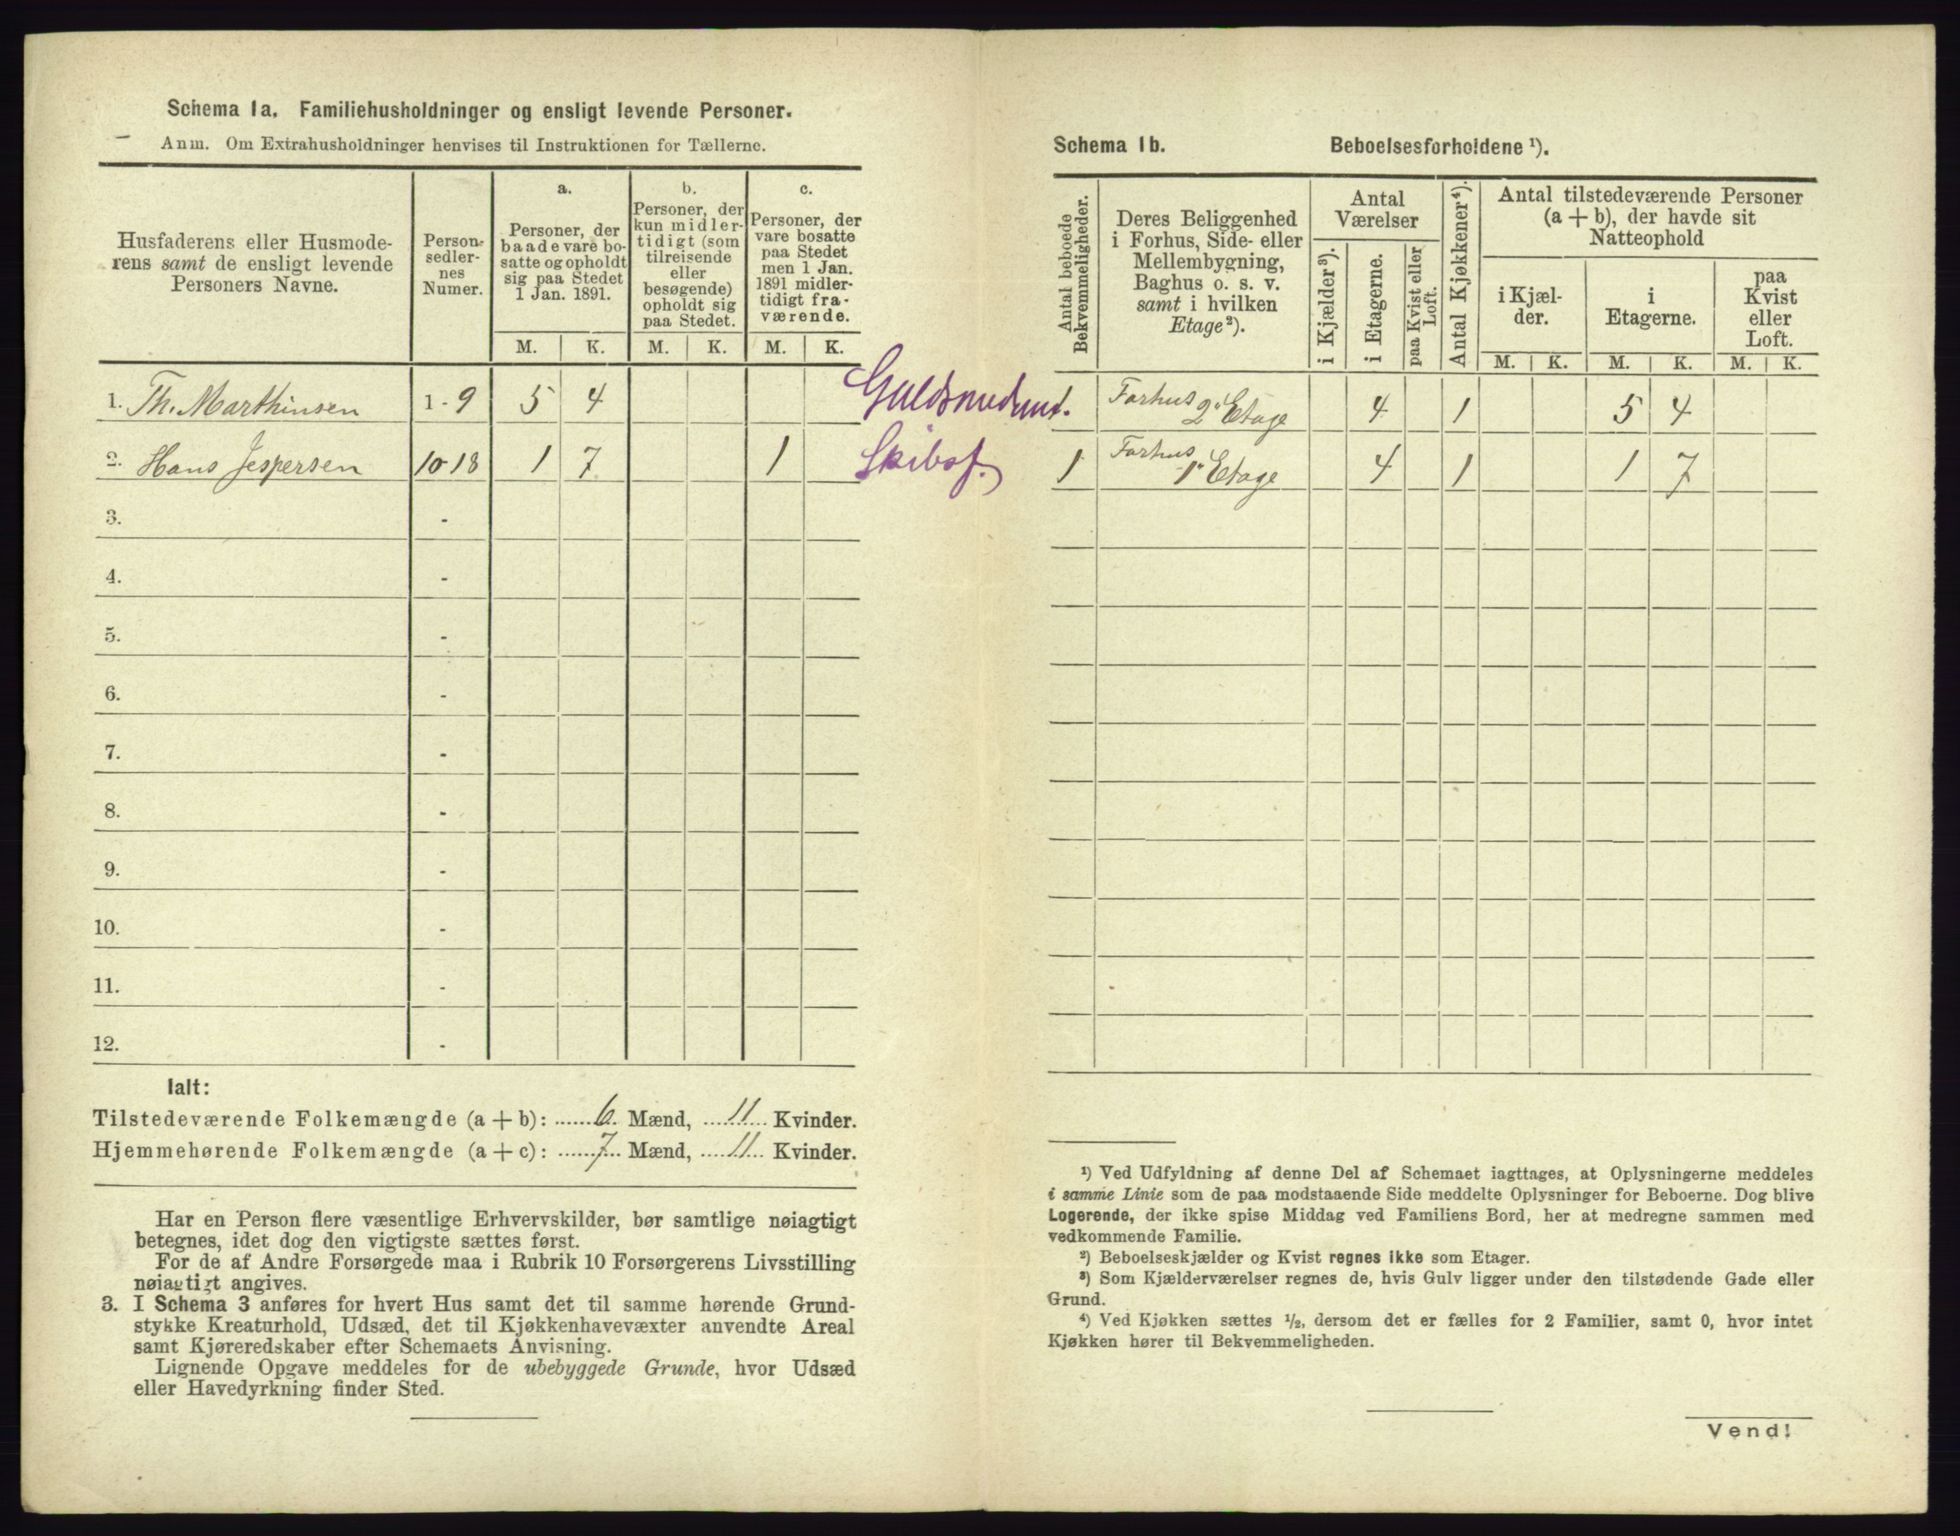 Schema 1a. Familiehusholdninger og ensligt levende Personer.
Anm. Om Extrahusholdninger henvises til Instruktionen for Tællerne.
Husfaderens eller Husmode-
rens samt de ensligt levende
Personers Navne.
Person-
sedler-
nes
Numer.
a.
Personer, der
baade vare bo-
satte og opholdt
sig paa Stedet
1 Jan. 1891.
b.
Personer, der
kun midler-
tidigt (som
tilreisende
eller
besøgende)
opholdt sig
paa Stedet.
c.
Personer, der
vare bosatte
paa Stedet
men 1 Jan.
1891 midler-
tidigt fra-
værende.
M. K. M. K. M. K.
1. Th. Marthinsen 1-9 5 4
2. Hans Jespersen 10-18 1 7 1 Skibsf.
3. -
4. -
5. -
6. -
7. -
8. -
9. -
10. -
11. -
12. -
Ialt:
Tilstedeværende Folkemængde (a + b): 6 Mænd, 11 Kvinder.
Hjemmehørende Folkemængde (a + c): 7 Mænd, 11 Kvinder.
Har en Person flere væsentlige Erhvervskilder, bør samtlige nøiagtigt
betegnes, idet dog den vigtigste sættes først.
For de af Andre Forsørgede maa i Rubrik 10 Forsørgerens Livsstilling
nøiagtigt angives.
3. I Schema 3 anføres for hvert Hus samt det til samme hørende Grund-
stykke Kreaturhold, Udsæd, det til Kjøkkenhavevæxter anvendte Areal
samt Kjøreredskaber efter Schemaets Anvisning.
Lignende Opgave meddeles for de ubebyggede Grunde, hvor Udsæd
eller Havedyrkning finder Sted.
Schema 1b. Beboelsesforholdene ¹).
Antal beboede
Bekvemmeligheder.
Deres Beliggenhed
i Forhus, Side- eller
Mellembygning,
Baghus o. s. v.
samt i hvilken
Etage ²).
Antal
Værelser
i Kjælder ³).
i Etagerne.
paa Kvist eller
Loft.
Antal Kjøkkener ⁴).
Antal tilstedeværende Personer
(a + b), der havde sit
Natteophold
i Kjæl-
der.
i
Etagerne.
paa
Kvist
eller
Loft.
M. K. M. K. M. K.
Forhus 2' Etage 4 1 5 4
1 Forhus 1' Etage 4 1 1 7
¹) Ved Udfyldning af denne Del af Schemaet iagttages, at Oplysningerne meddeles
i samme Linie som de paa modstaaende Side meddelte Oplysninger for Beboerne. Dog blive
Logerende, der ikke spise Middag ved Familiens Bord, her at medregne sammen med
vedkommende Familie.
²) Beboelseskjælder og Kvist regnes ikke som Etager.
³) Som Kjælderværelser regnes de, hvis Gulv ligger under den tilstødende Gade eller
Grund.
⁴) Ved Kjøkken sættes ½, dersom det er fælles for 2 Familier, samt 0, hvor intet
Kjøkken hører til Bekvemmeligheden.
Vend!